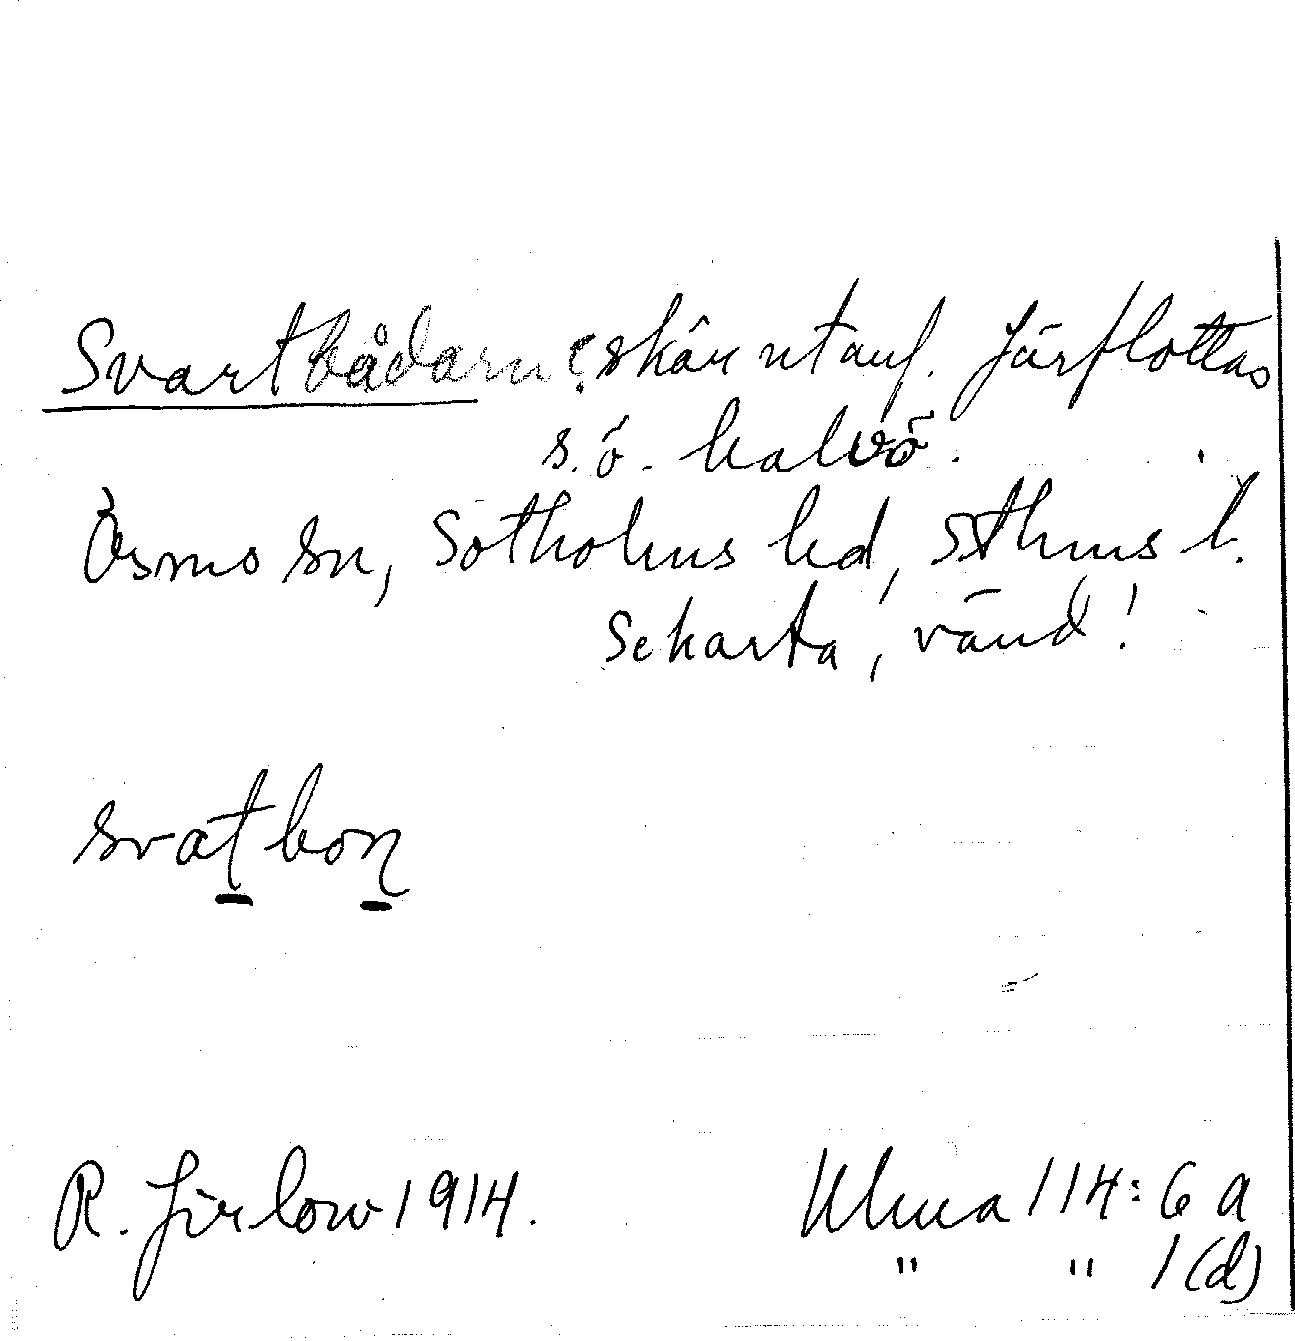 Svartbådarn? skär utanf. Järflottas
s.ö. halvö.
Ösmo sn, Sotholms hd, Sthms l.
Se karta, vänd!
svat bon
R. Jirlow 1914.
Ulma 114: 6 a
" " 1 (d)